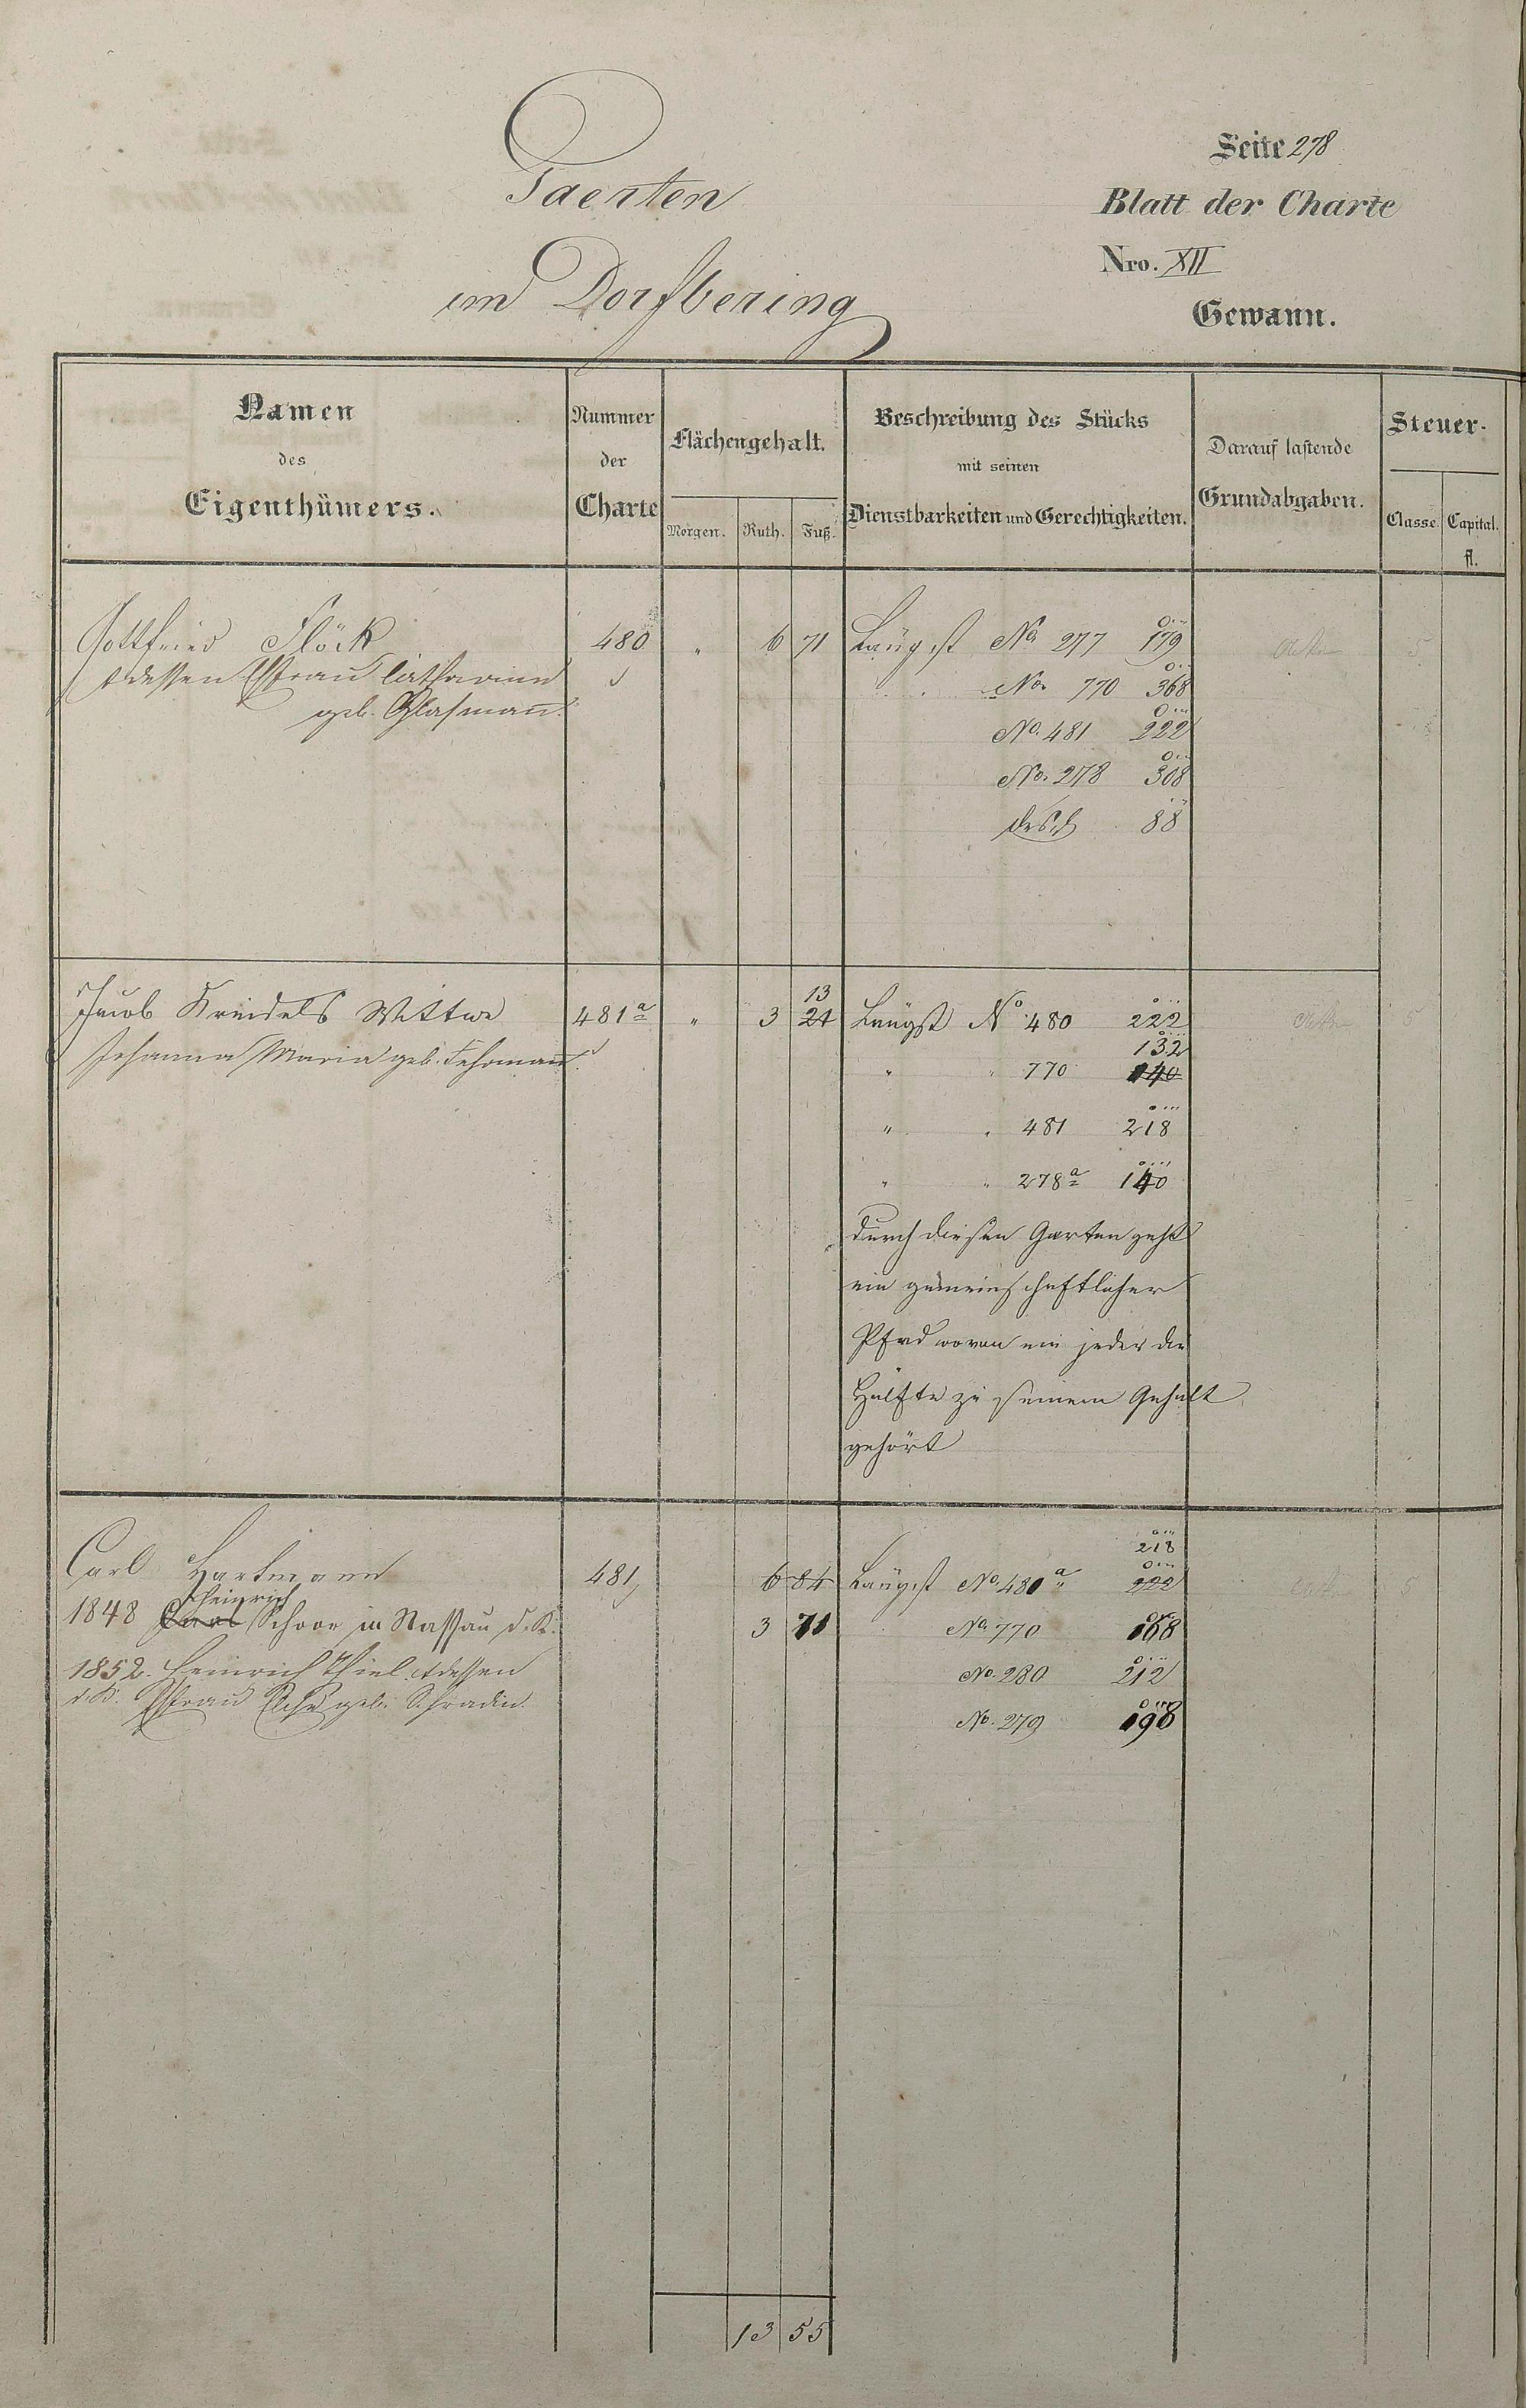 Seite 278
Gaerten
Blatt der Charte
Nro. XII
im Dorfbering
Gewann.
Namen des Eigenthümers.
Nummer der Charte
Flächengehalt.
Morgen. Ruth. Fuß.
Beschreibung des Stücks mit seinen Dienstbarkeiten und Gerechtigkeiten.
Darauf lastende Grundabgaben.
Steuer-
Classe. Capital. fl.
Gottfried Flöck 480 " 6 71 Längst No 277 179 5
& dessen Ehfrau Catharina No. 770 368
geb. Glasmann No. 481 222
No. 278 308
desgl 88
13
Jacob Kreidels Wittwe 481a " 3 21 Längst No 480 222 5
132
Johanna Maria geb. Fehrmann " " 770 140
" " 481 218
" " 278a 140
durch diesen Garten geht
ein gemeinschaftlicher
Pfad wovon ein jeder die
Hälfte zu seinem Gehalt
gehört
218
Carl Hartmann 481 6 84 Längst No. 480a 222 5
Heinrich
1848 Carl Schoor in Nassau d. K. 3 71 No. 770 168
1852. Heinrich Thiel & dessen No. 280 212
d. K. Ehfrau geb. Schradin No. 279 198
13 55